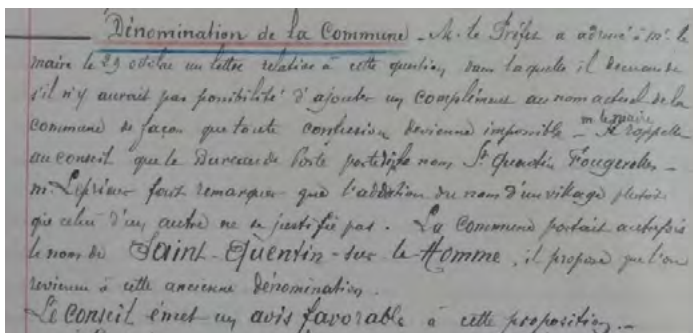 Dénomination de la Commune - M. le Préfet a adressé à Mr le
maire le 29 octobre un lettre relative à cette question, dans laquelle il demande
s'il n'y aurait pas possibilité d'ajouter un complément au nom actuel de la
commune de façon que toute confusion devienne impossible - m le maire rappelle
au conseil que le Bureau de Poste porte déjà le nom St Quentin Fougerolles -
m. Leprieur fait remarquer que l'addition du nom d'un village plutôt
que celui d'un autre ne se justifie pas. La commune portait autrefois
le nom de Saint-Quentin-sur-le-Homme, il propose que l'on
revienne à cette ancienne dénomination.
Le Conseil émet un avis favorable à cette proposition. -